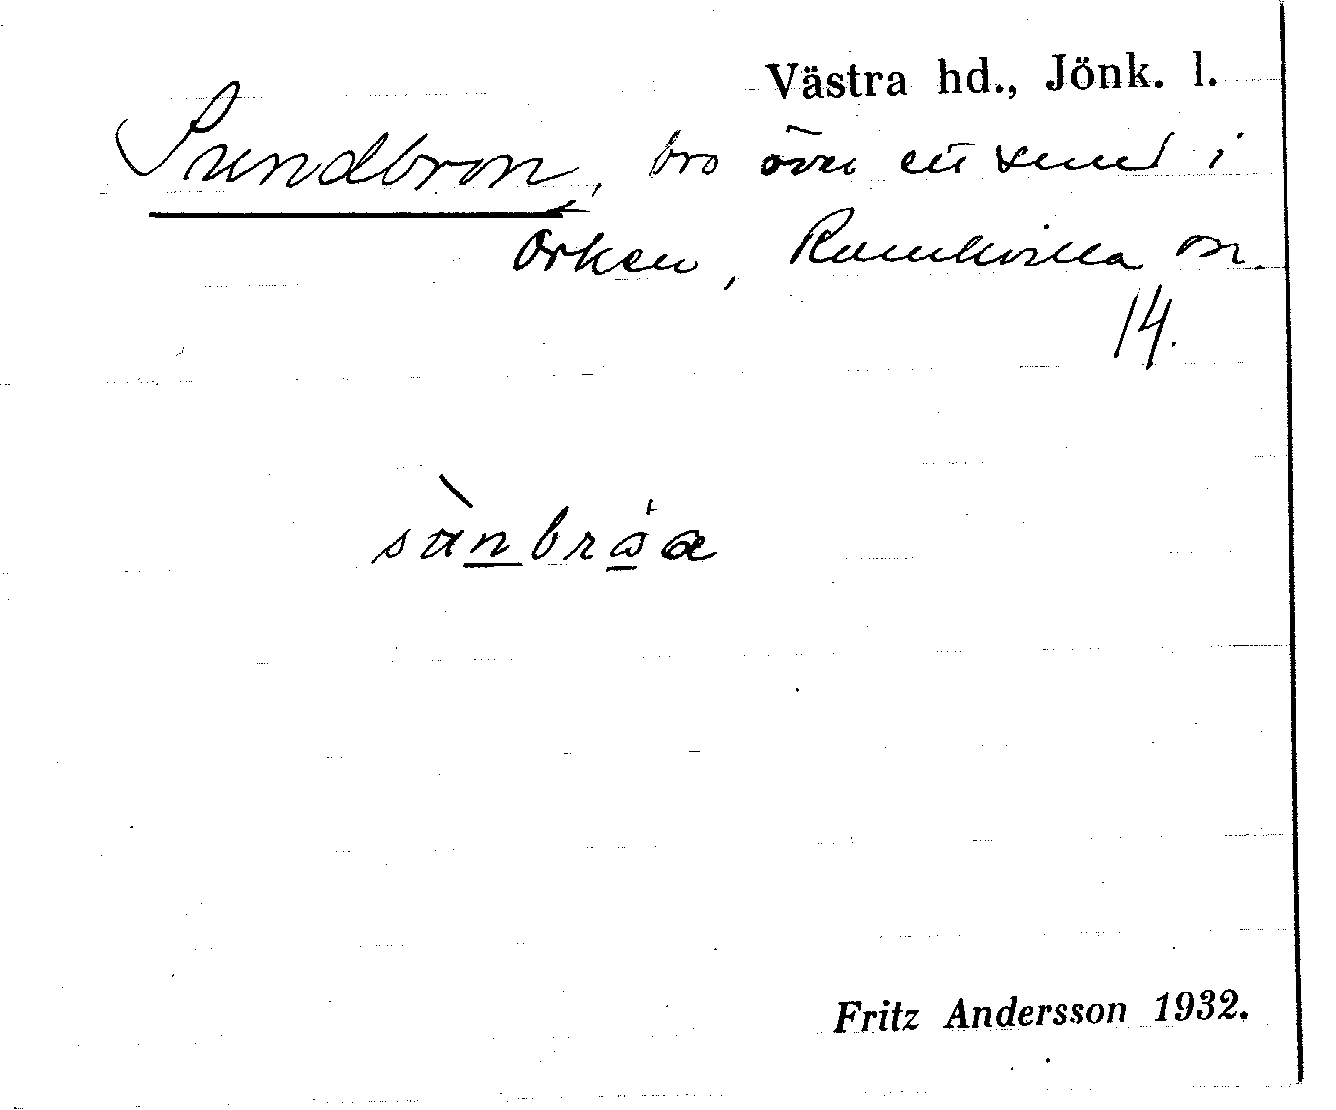 Västra hd., Jönk. l.
Sundbron, bro över ett sund i
Örken, Ramkvilla sn.
14.
sùnbråa
Fritz Andersson 1932.